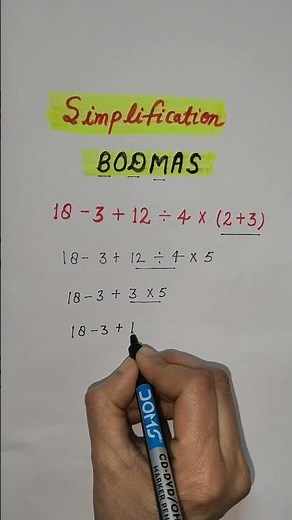 Simplification
BODMAS
18 - 3 + 12 ÷ 4 × (2+3)
18 - 3 + 12 ÷ 4 × 5
18 - 3 + 3 × 5
18 - 3 + 1
DOMS
CD-DVD/OH
MARKER PEN